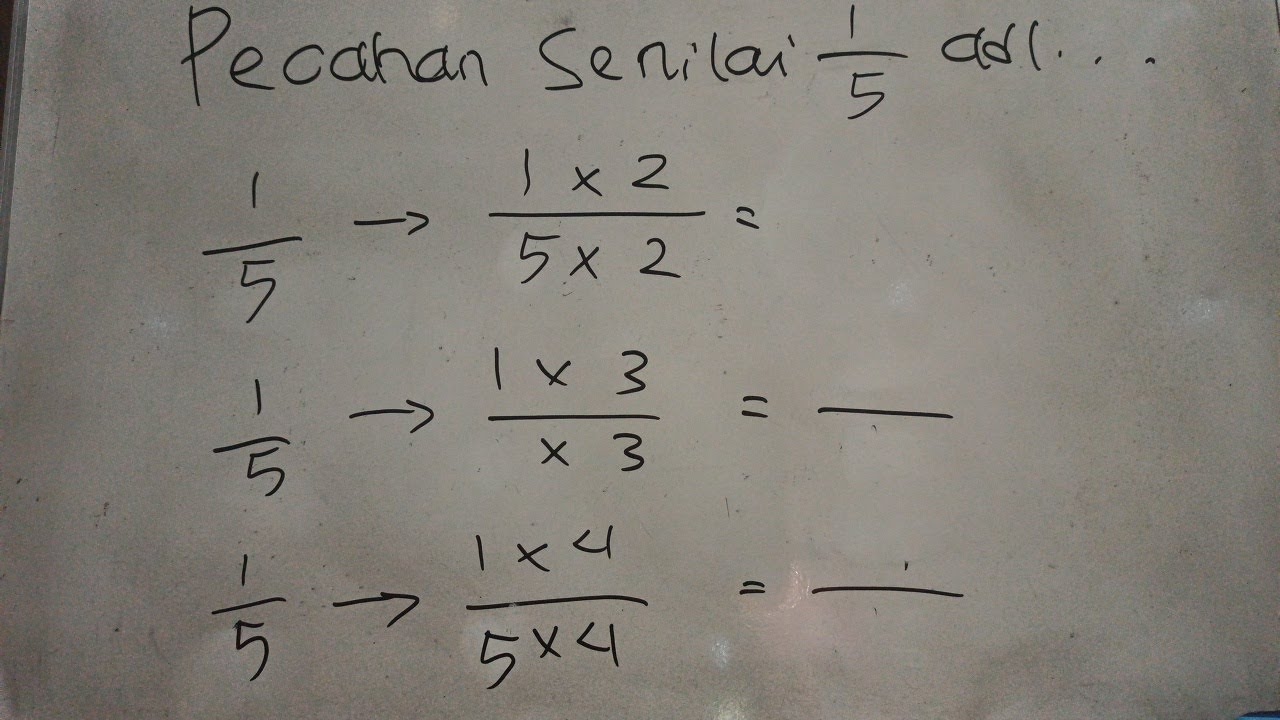 Pecahan Senilai 1/5 adl...
1/5 → 1 x 2 / 5 x 2 =
1/5 → 1 x 3 / x 3 = —
1/5 → 1 x 4 / 5 x 4 = —